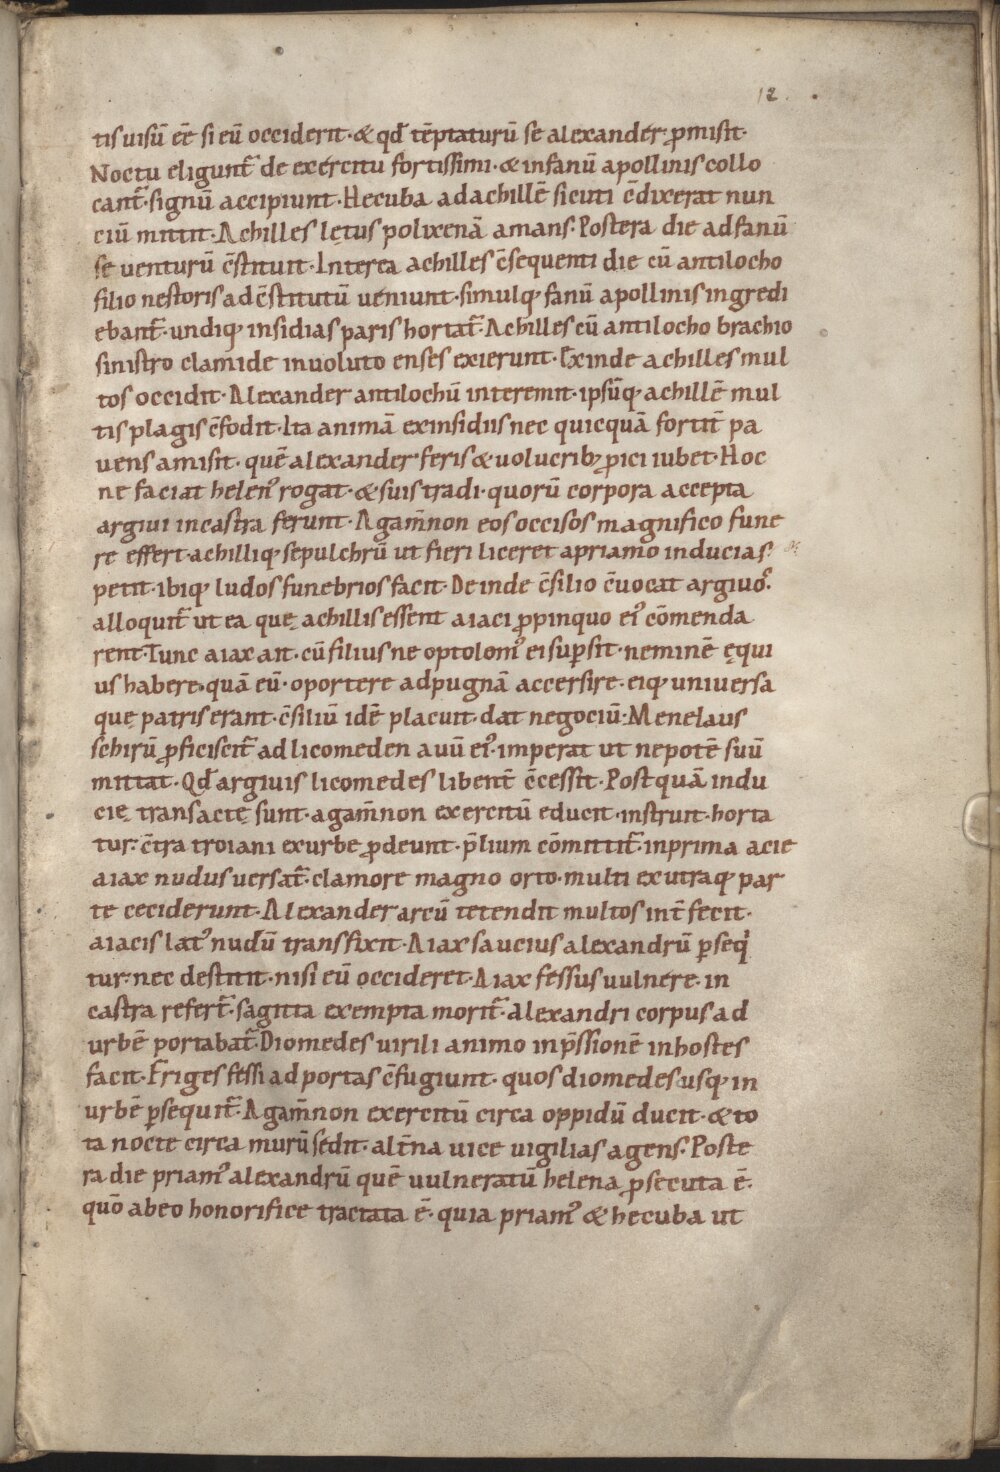 12.
tis uisū eē si eū occiderit · & qđ tēptaturū se alexander p̄misit·
Noctu eligunt̄ de exercitu fortissimi · & in fanū apollinis collo
cant̄ · signū accipiunt · Hecuba ad achillē sicuti c̄dixerat nun
ciū mittit · Achilles lętus polixenā amans · Postera die ad fanū
se uenturū c̄stituit · Interea achilles c̄sequenti die cū antilocho
filio nestoris ad c̄stitutū ueniunt · simulq; fanū apollinis ingredi
ebant̄ · undiq; insidias paris hortat̄ · Achilles cū antilocho brachio
sinistro clamide inuoluto enses exierunt · Exinde achilles mul
tos occidit · Alexander antilochū interemit · ipsūq; achillē mul
tis plagis c̄fodit · Ita animā ex insidiis nec quicquā fortit̄ pa
uens amisit · quē alexander feris & uolucrib; p̄ici iubet · Hoc
ne faciat helen᾽ rogat · & suis tradi · quorū corpora accepta
argiui in castra ferunt · Agam̄non eos occisos magnifico fune
re effert · achilliq; sepulchrū ut fieri liceret a priamo inducias
petit · ibiq; ludos funebrios facit · Deinde c̄silio c̄uocat argiuos
alloquit̄ ut ea quę achillis essent aiaci p̄pinquo ei᾽ cōmenda
rent · Tunc aiax ait · cū filius neoptolom᾽ ei sup̄sit · neminē ęqui
us habere · quā eū · oportere ad pugnā accersire · eiq; uniuersa
quę patris erant · c̄siliū idē placuit · dat negociū · Menelaus
schirū p̄ficiscit̄ ad licomeden auū ei᾽ · imperat ut nepotē suū
mittat · Qđ argiuis licomedes libent̄ c̄cessit · Postquā indu
cię transactę sunt · agam̄non exercitū educit · instruit · horta
tur · c̄tra troiani ex urbe p̄deunt · p̄lium cōmittit̄ · in prima acie
aiax nudus uersat̄ · clamore magno orto · multi ex utraq; par
te ceciderunt · Alexander arcū tetendit multos int̄fecit ·
aiacis lat᾽ nudū transfixit · Aiax saucius alexandrū p̄seqi
tur · nec destitit · nisi eū occideret · Aiax fessus uulnere · in
castra refert̄ · sagitta exempta morit̄ · alexandri corpus ad
urbē portabat̄ · Diomedes uirili animo inp̄ssionē in hostes
facit · Friges fessi ad portas c̄fugiunt · quos diomedes usq; in
urbē p̄sequit̄ · Agam̄non exercitū circa oppidū ducit · & to
ta nocte circa murū sedit · alt̄na uice uigilias agens · Poste
ra die priam᾽ alexandrū quē uulneratū helena p̄secuta ē ·
quō ab eo honorifice tractata ē · quia priam᾽ & hecuba ut